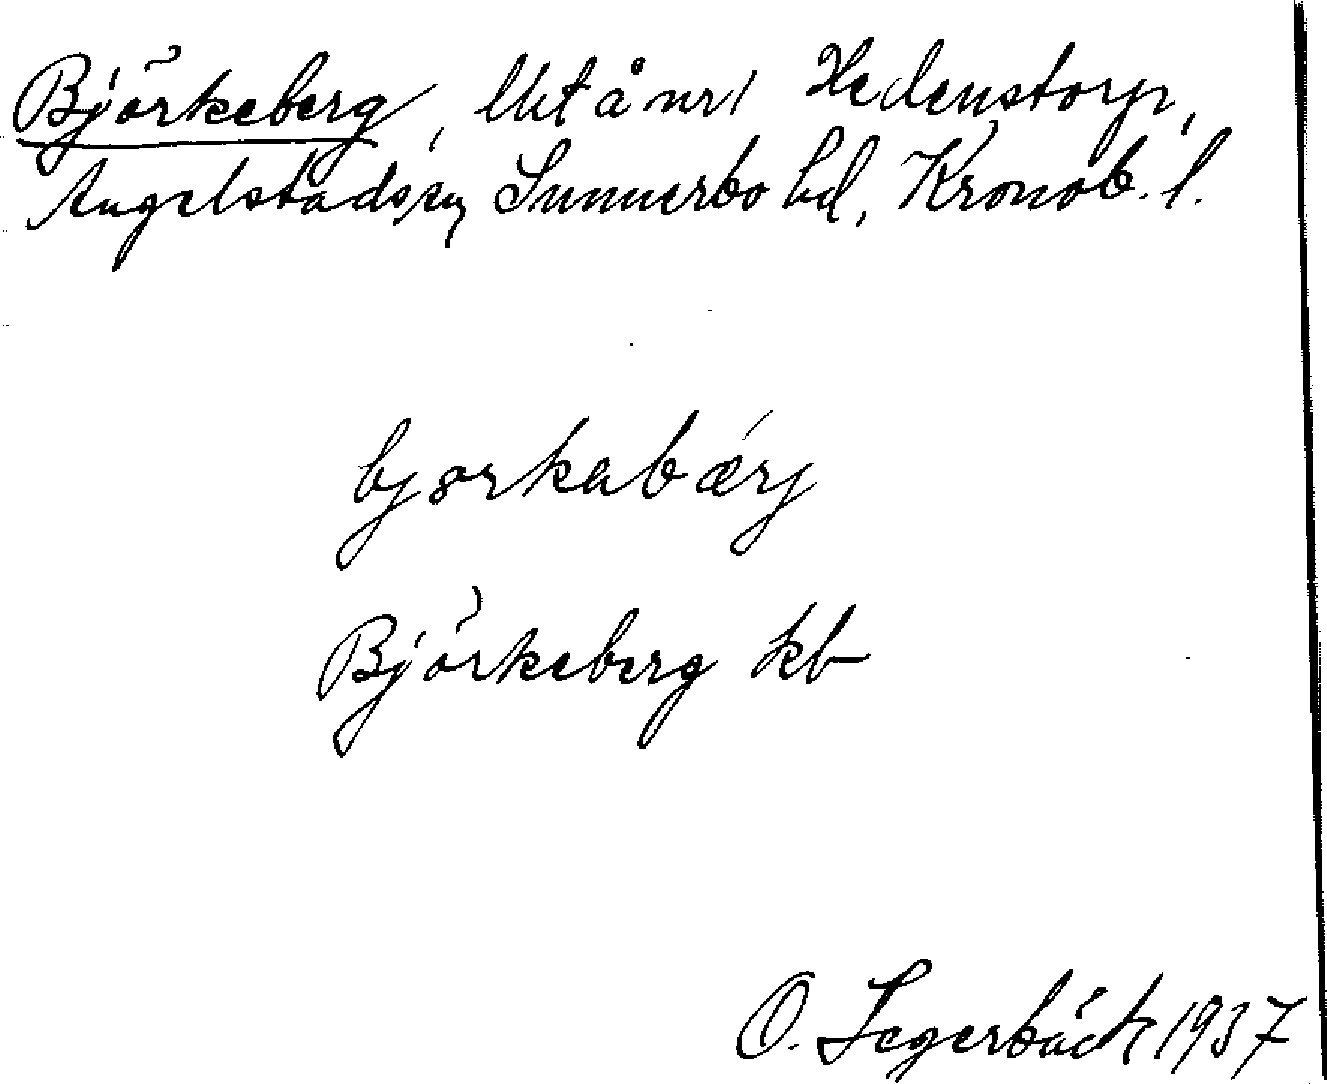 Björkeberg, lht å nr 1 Hedenstorp,
Angelstads sn, Sunnerbo hd, Kronob. l.
bjorkabærj
Björkeberg kb
O. Segerbäck 1937